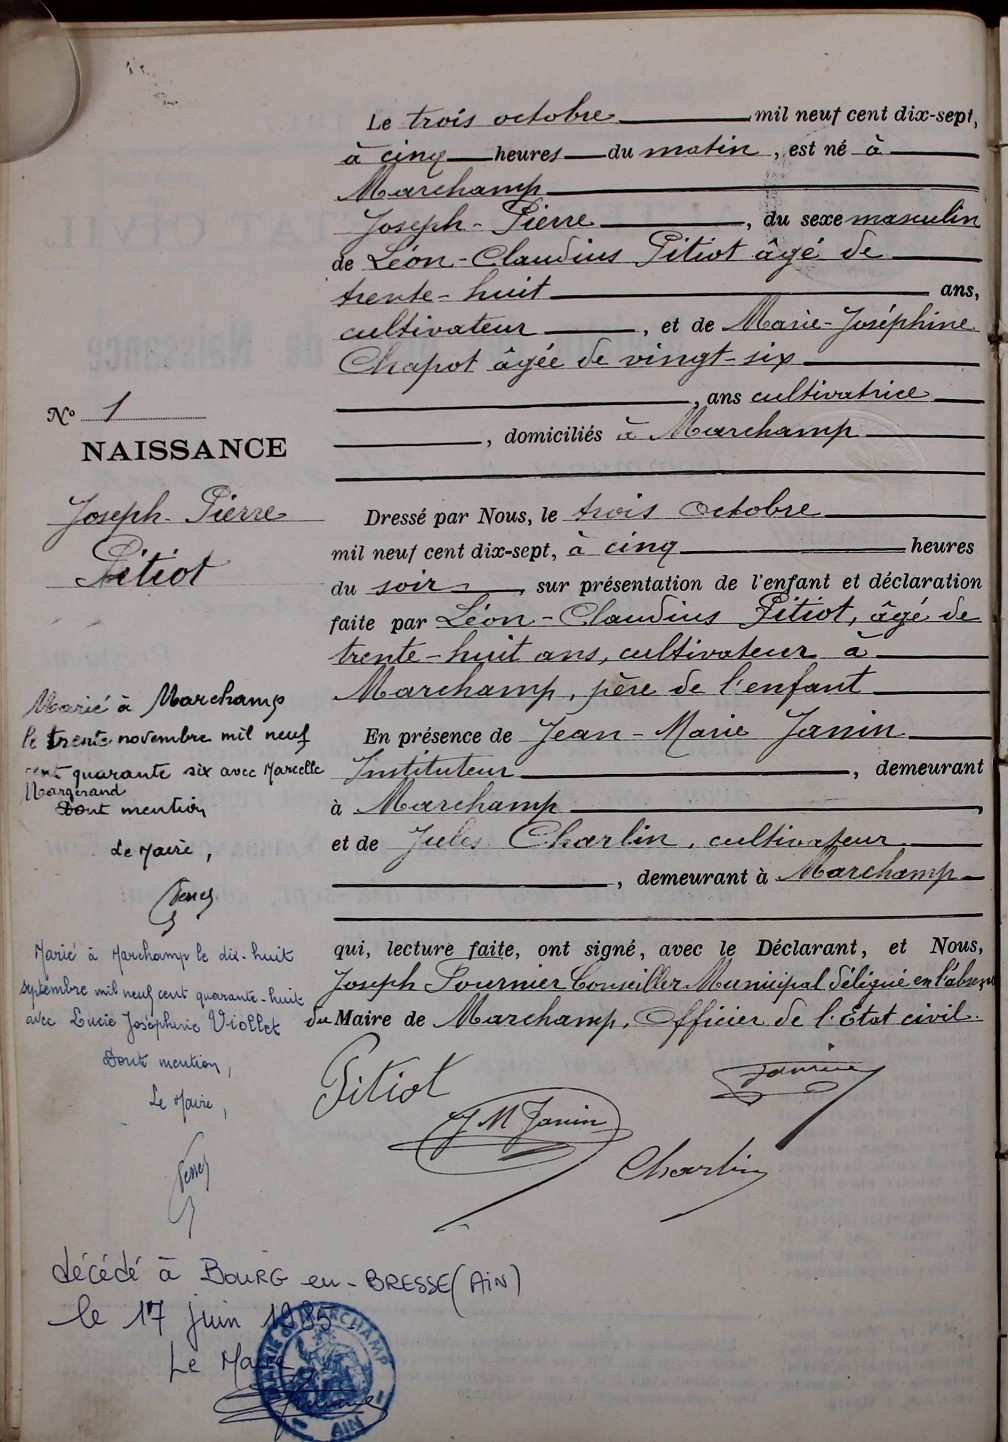 Le trois octobre mil neuf cent dix-sept,
à cinq heures du matin, est né à
Marchamp
Joseph-Pierre, du sexe masculin
de Léon-Claudius Pitiot âgé de
trente-huit ans,
cultivateur, et de Marie-Joséphine
Chapot âgée de vingt-six
, ans cultivatrice
, domiciliés à Marchamp
Dressé par Nous, le trois octobre
mil neuf cent dix-sept, à cinq heures
du soir, sur présentation de l'enfant et déclaration
faite par Léon-Claudius Pitiot, âgé de
trente-huit ans, cultivateur à
Marchamp, père de l'enfant
En présence de Jean-Marie Janin
Instituteur, demeurant
à Marchamp,
et de Jules Charlin, cultivateur
, demeurant à Marchamp
qui, lecture faite, ont signé, avec le Déclarant, et Nous,
Joseph Fournier Conseiller Municipal délégué en l'absence
du Maire de Marchamp, Officier de l'Etat civil.
Pitiot
J M Janin
Charlin
N° 1
NAISSANCE
Joseph-Pierre
Pitiot
Marié à Marchamp
le trente novembre mil neuf
cent quarante six avec Marcelle
Margerand
Dont mention
Le Maire,
Marié à Marchamp le dix-huit
septembre mil neuf cent quarante-huit
avec Lucie Joséphine Viollet
Dont mention,
Le Maire,
décédé à BOURG en-BRESSE (AIN)
le 17 juin 1985
Le Maire
MAIRIE de MARCHAMP
AIN